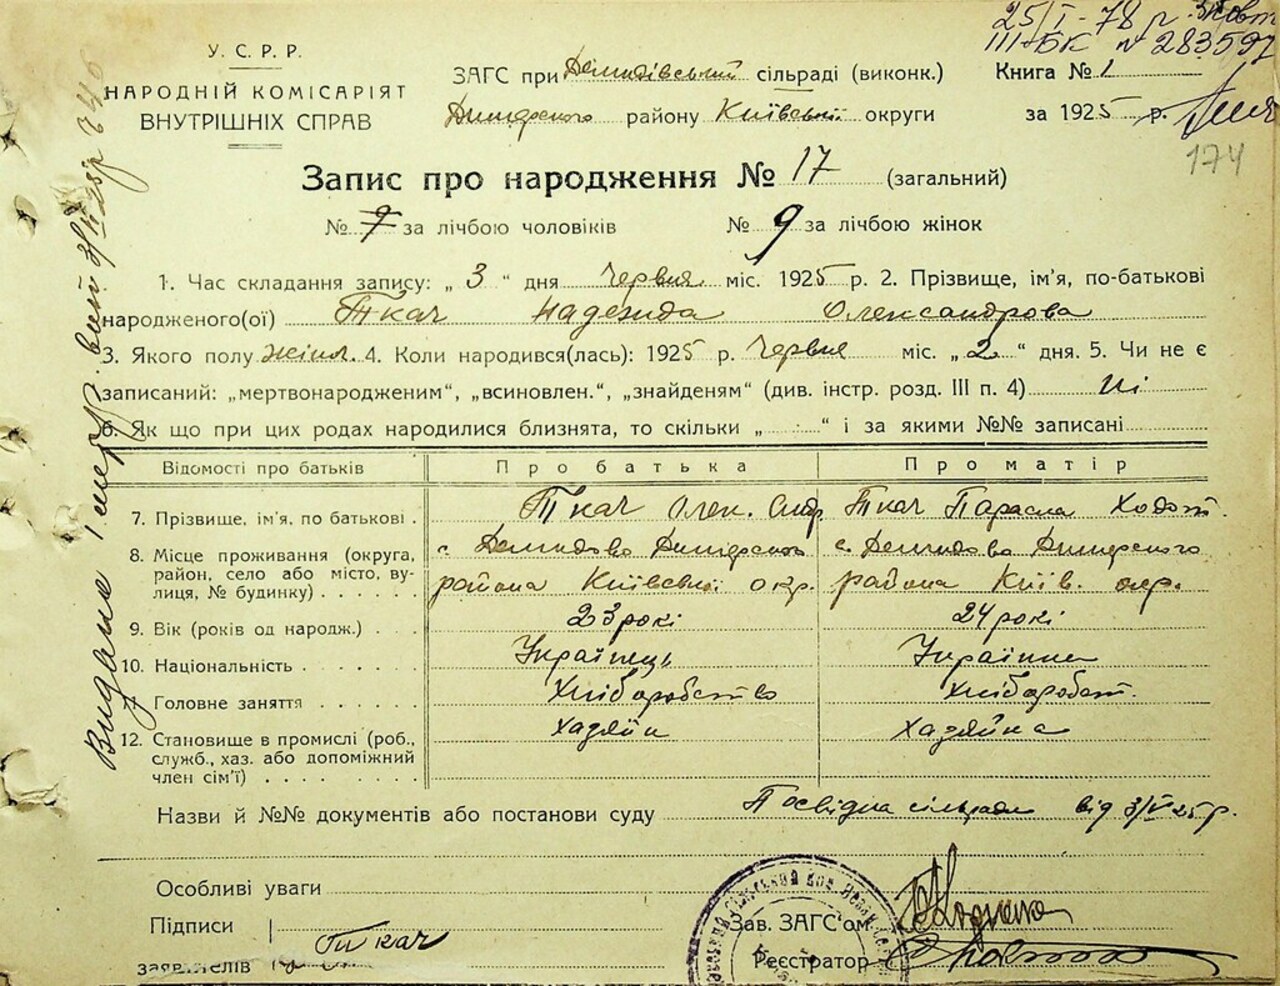 25/I-78 р.
III-БК № 283597
У. С. Р. Р.
НАРОДНІЙ КОМІСАРІЯТ
ВНУТРІШНІХ СПРАВ
ЗАГС при Демидівський сільраді (виконк.)
Димерского району Київської округи
Книга № 1
за 1925 р.
174
Запис про народження № 17 (загальний)
№ 7 за лічбою чоловіків № 9 за лічбою жінок
1. Час складання запису: „ 3 “ дня Червня міс. 1925 р. 2. Прізвище, ім'я, по-батькові
народженого(ої) Ткач Надежда Олександрова
3. Якого полу жіин. 4. Коли народився(лась): 1925 р. Червня міс. „ 2 “ дня. 5. Чи не є
записаний: „мертвонародженим“, „всиновлен.“, „знайденям“ (див. інстр. розд. III п. 4) Ні
6. Як що при цих родах народилися близнята, то скільки „ “ і за якими №№ записані
Відомості про батьків Про батька Про матір
7. Прізвище, ім'я, по батькові . Ткач Олек. Ткач Параска Ходот.
8. Місце проживання (округа, с. Демидово Димерского с. Демидово Димерского
район, село або місто, ву-
лиця, № будинку) района Київської окр. района Київ. окр.
9. Вік (років од народж.) 23 рокі 24 рокі
10. Національність Українець Українка
Головне заняття Хліборобство Хліборобст.
12. Становище в промислі (роб., Хазяїн Хазяйка
служб., хаз. або допоміжний
член сім'ї)
Назви й №№ документів або постанови суду Посвідка сільради від 3/VI 25 р.
Особливі уваги
Підписи
заявителів
Ткач
Зав. ЗАГС'ом
Реєстратор
Видано